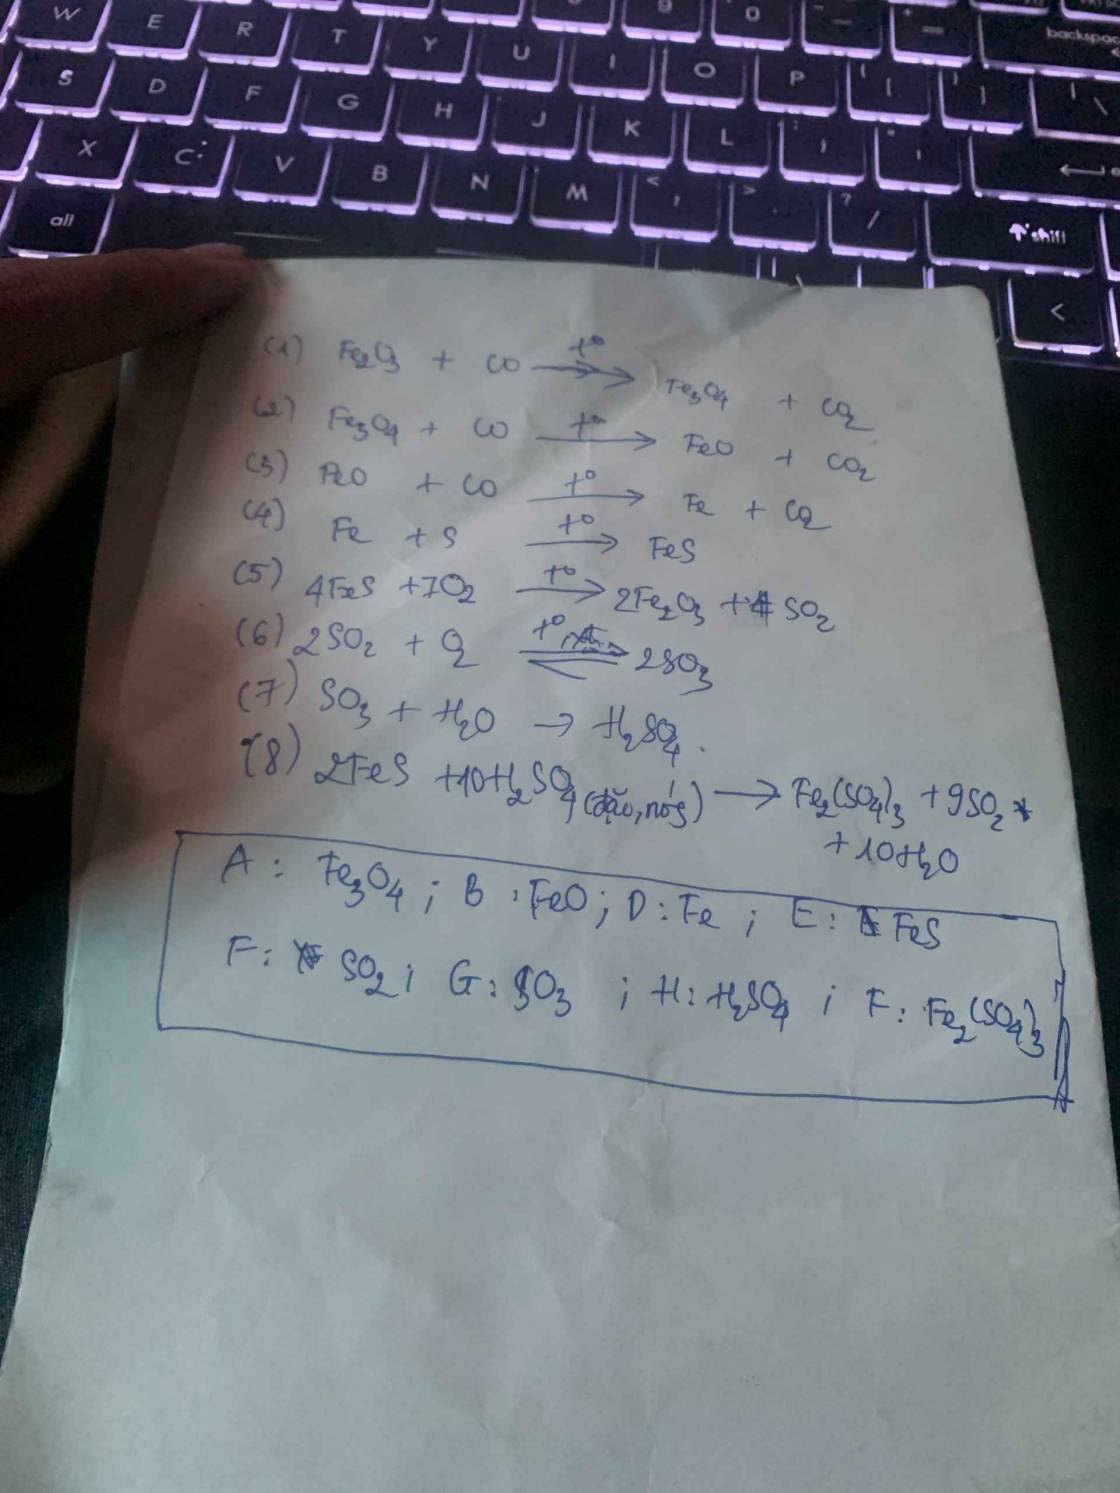 W E R T Y U I 9 O 0 P - _ + = backspac
S D F G H J K L : ; " ' { [ } ] | \
X C V B N M < , > . ? / shift
alt <
(1) Fe₂O₃ + CO t° → Fe₃O₄ + CO₂
(2) Fe₃O₄ + CO t° → FeO + CO₂
(3) FeO + CO t° → Fe + CO₂
(4) Fe + S t° → FeS
(5) 4FeS + 7O₂ t° → 2Fe₂O₃ + 4SO₂
(6) 2SO₂ + O₂ t°, ⇌ 2SO₃
(7) SO₃ + H₂O → H₂SO₄.
(8) 2FeS + 10H₂SO₄ (đặc, nóng) → Fe₂(SO₄)₃ + 9SO₂
+ 10H₂O
A : Fe₃O₄ ; B : FeO ; D : Fe ; E : FeS
F : SO₂ ; G : SO₃ ; H : H₂SO₄ ; F : Fe₂(SO₄)₃